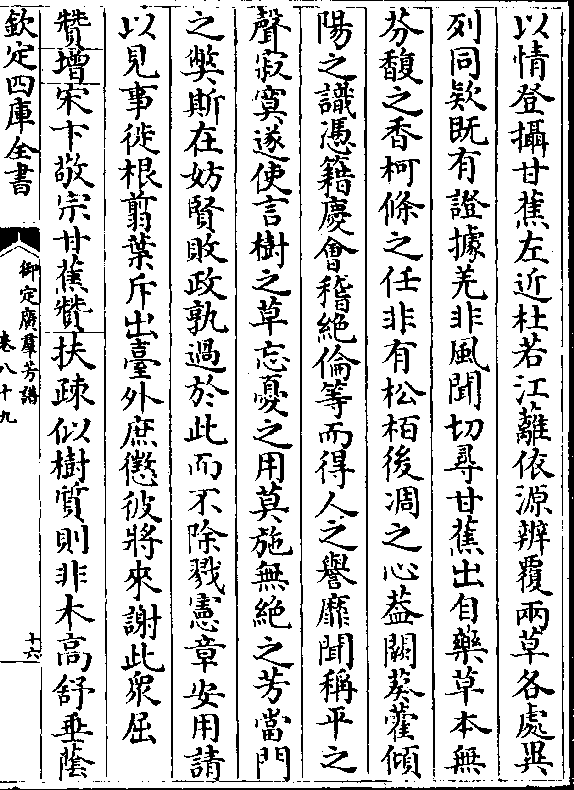 以情登攝甘蕉左近杜若江蘺依源辨覆兩草各處異
列同欵既有證據羌非風聞切尋甘蕉出自藥草本無
芬馥之香柯條之任非有松栢後凋之心葢闕葵藿傾
陽之識憑籍慶會稽絶倫等而得人之譽靡聞稱平之
聲寂寞遂使言樹之草忘憂之用莫施無絶之芳當門
之獘斯在妨賢敗政孰過於此而不除戮憲章安用請
以見事徙根翦葉斥出臺外庶懲彼將來謝此衆屈
贊增宋卞敬宗甘蕉贊扶疎似樹質則非木高舒垂蔭
欽定四庫全書
御定廣羣芳譜
卷八十九
十六